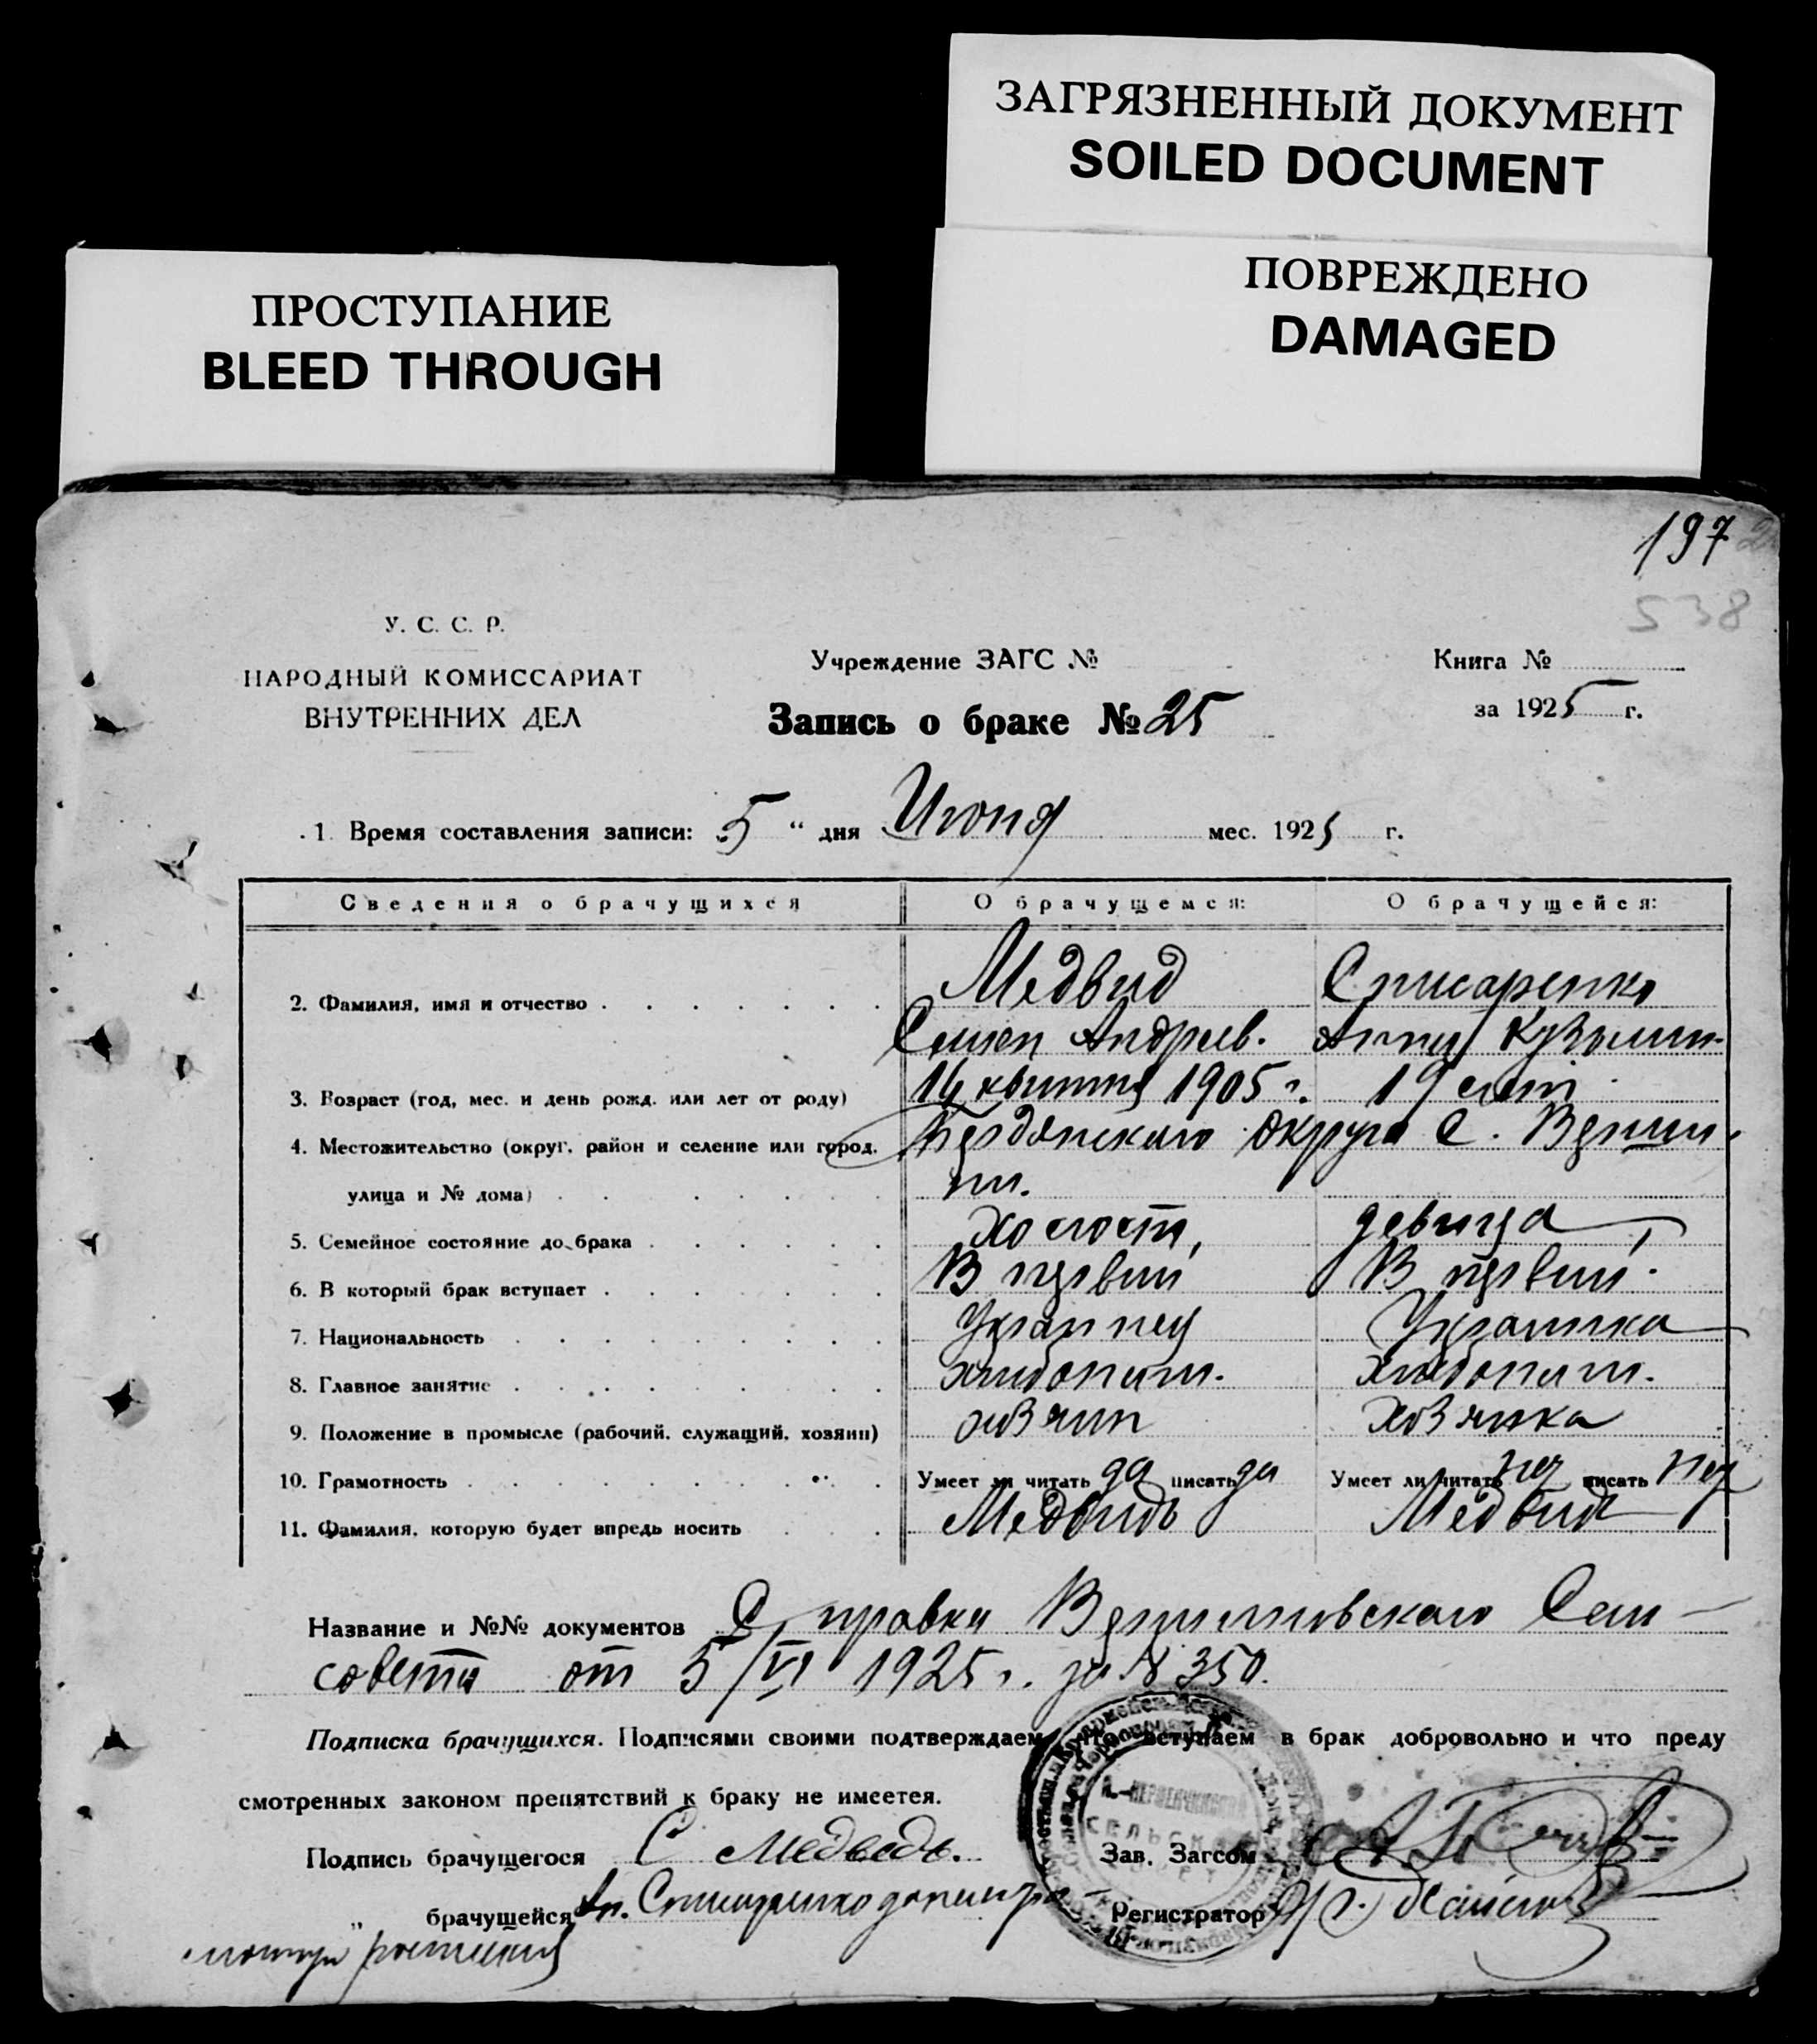 ЗАГРЯЗНЕННЫЙ ДОКУМЕНТ
SOILED DOCUMENT
ПОВРЕЖДЕНО
DAMAGED
ПРОСТУПАНИЕ
BLEED THROUGH
197
538
У. С. С. Р.
НАРОДНЫЙ КОМИССАРИАТ
ВНУТРЕННИХ ДЕЛ
Учреждение ЗАГС №
Книга №
Запись о браке № 25
за 1925 г.
1 Время составления записи: 5 " дня Июня мес. 1925 г.
Сведения о брачущихся О брачущемся: О брачущейся:
2. Фамилия, имя и отчество Медвид Списаренко
Семен Андреев. Анна Кузьмин.
3. Возраст (год, мес. и день рожд. или лет от роду) 1905 г. 19 лет
4. Местожительство (округ, район и селение или город, Бердянского округа с.
улица и № дома)
5. Семейное состояние до брака Холост, девица
6. В который брак вступает В первий В первий.
7. Национальность Украинец Украинка
8. Главное занятие хлибопаш. хлибопаш.
9. Положение в промысле (рабочий, служащий, хозяин) хозяин хозяика
10. Грамотность Умеет ли читать да писать да Умеет ли читать нет писать нет
11. Фамилия, которую будет впредь носить Медвидь Медвидь
Название и №№ документов Справка Сель
совета от 5/VI 1925 г. за № 350.
Подписка брачущихся. Подписями своими подтверждаем, что вступаем в брак добровольно и что преду
смотренных законом препятствий к браку не имеетея.
Подпись брачущегося С Медведь.
Зав. Загсом
" брачущейся Ан. Списаренко
Регистратор
СЕЛЬСК